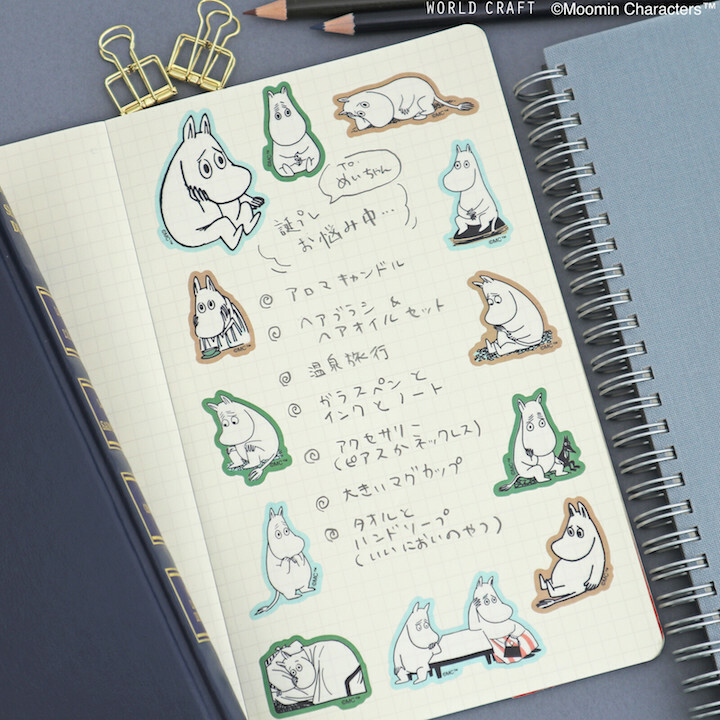 WORLD CRAFT ©Moomin Characters™
to.
めいちゃん
誕プレ
お悩み中…
アロマキャンドル
ヘアブラシ &
ヘアオイルセット
温泉旅行
ガラスペンと
インクとノート
アクセサリー
(ピアスかネックレス)
大きいマグカップ
タオルと
ハンドソープ
(いいにおいのやつ)
©MC™
©MC™
©MC™
©MC™
©MC™
©MC™
©MC™
©MC™
©MC™
©MC™
©MC™
©MC™